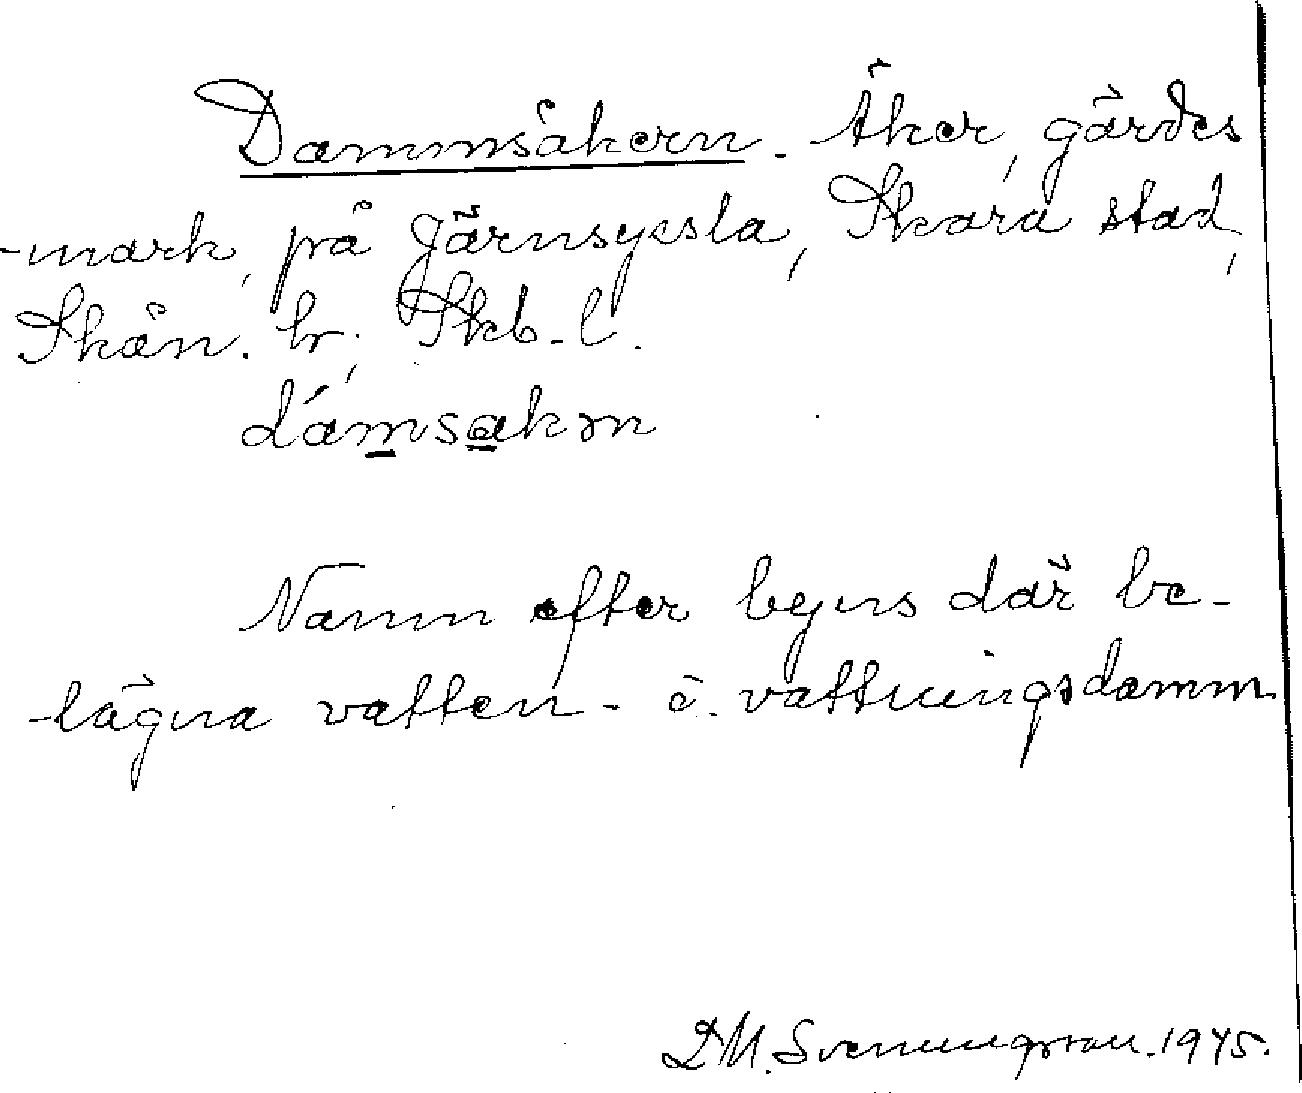 Dammsåkern. Åker, gärdes
-mark, på Järnsyssla, Skara stad,
Skån. hr, Skb. l.
dámsakən
Namn efter byns där be-
lägna vatten- o. vattningsdamm.
Svenungsson. 1945.